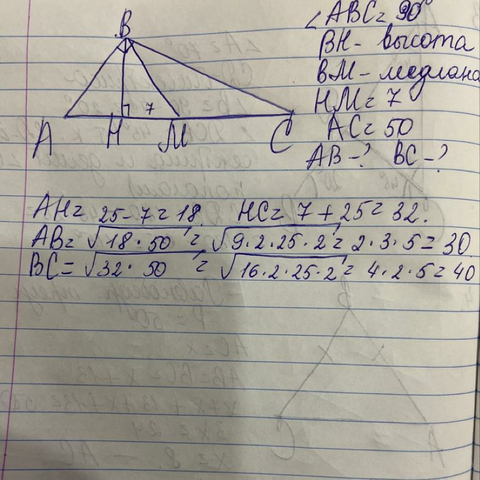 ∠ABC = 90°
BH - высота
BM - медиана
HM = 7
AC = 50
AB - ? BC - ?
B
7
A H M C
AH = 25 - 7 = 18 HC = 7 + 25 = 32.
AB = √18 · 50 = √9 · 2 · 25 · 2 = 2 · 3 · 5 = 30
BC = √32 · 50 = √16 · 2 · 25 · 2 = 4 · 2 · 5 = 40